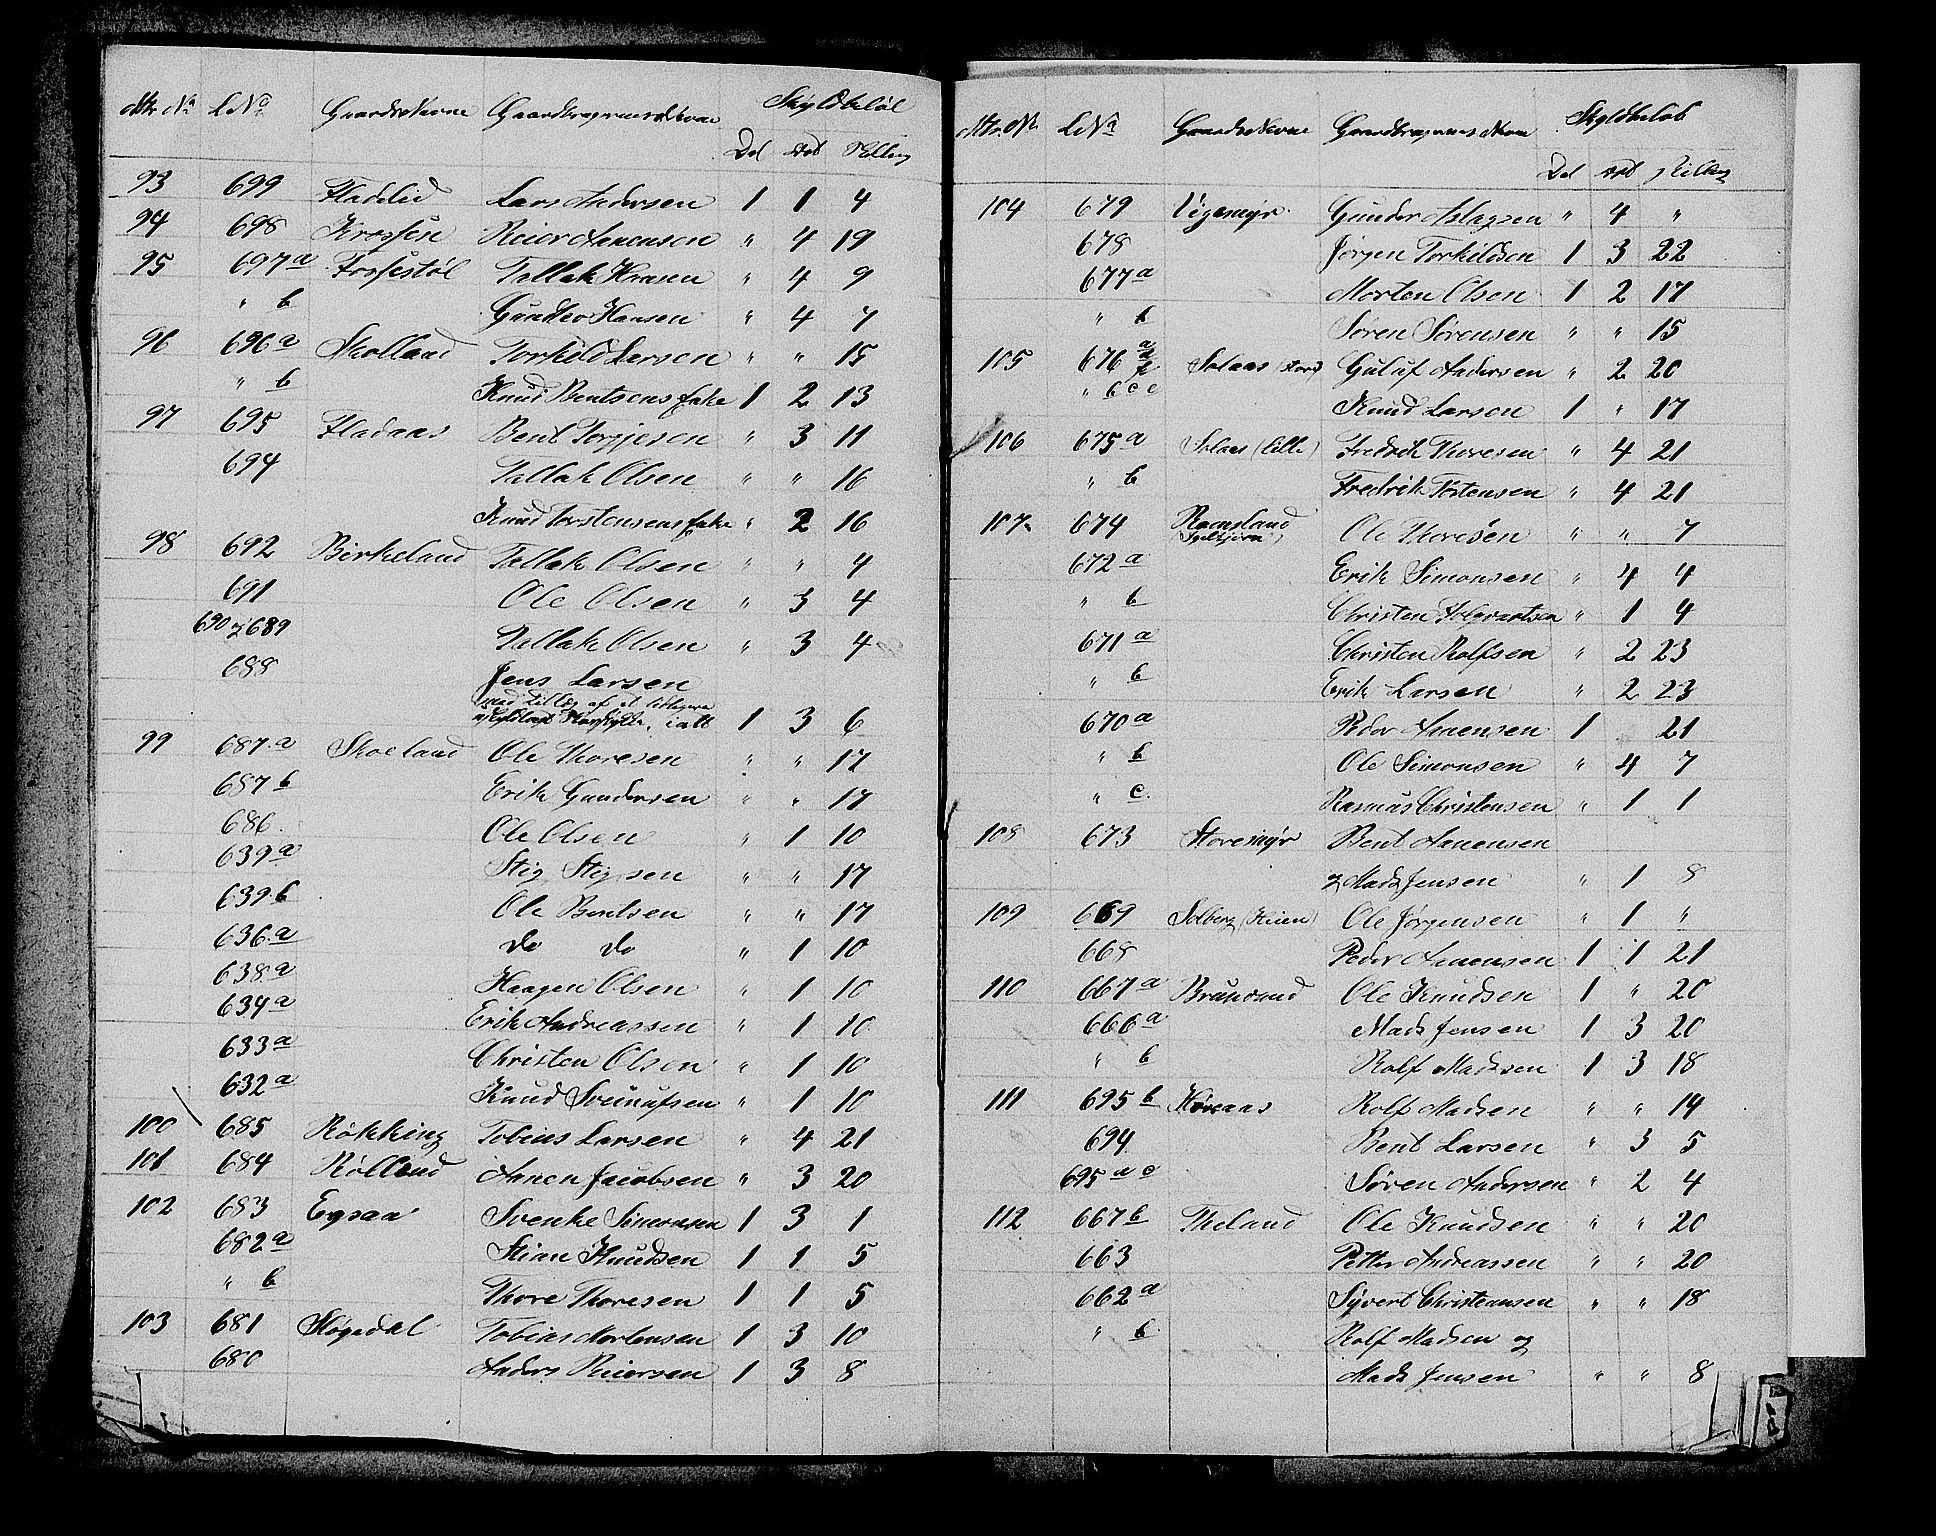 Mtr. No L No Gaardsnavne Gaardbrugernes Navne Skyldbeløb
Dal Ort Skilling
93 699 Fladelid Lars Andersen 1 1 4
94 698 Krossen Reier Aanensen " 4 19
95 697 a Fossestøl Tallak Hansen " 4 9
" b Gunder Hansen " 4 7
96 696 a Skolland Torkild Larsen " " 15
" b Knud Bentsens Enke 1 2 13
97 695 Fladaas Bent Torgjesen " 3 11
694 Tallak Olsen " " 16
Knud Torstensens Enke " 2 16
98 692 Birkeland Tallak Olsen " " 4
691 Ole Olsen " 3 4
690 & 689 Tallak Olsen " 3 4
688 Jens Larsen
med Tillæg af et
i alt 1 3 6
99 687 a Skoeland Ole Thoresen " " 17
687 b Erik Gundersen " " 17
686. Ole Olsen " 1 10
639 a Stig Stigsen " " 17
639 b Ole Bentsen " " 17
636 a do do " 1 10
638 a Haagen Olsen " 1 10
634 a Erik Andreassen " 1 10
633 a Christen Olsen " 1 10
632 a Knud Svenufsen " 1 10
100 685 Røkking Tobias Larsen " 4 21
101 684 Røllend Aanen Jacobsen " 3 20
102 683 Egsaa Svenke Simonsen 1 3 1
682 a Stian Knudsen 1 1 5
" b Thore Thoresen 1 1 5
103 681 Høgedal Tobias Mortensen 1 3 10
680 Anders Reiersen 1 3 8
Mtr. No L No Gaardsnavne Gaardbrugernes Navne Skyldbeløb
Dal Ort Skilling
104 679 Vigemyr Gunder Aslagsen " 4 "
678 Jørgen Torkildsen 1 3 22
677 a Morten Olsen 1 2 17
" b Søren Sørensen " " 15
105 676 a d Solaas (store) Guluf Andersen " 2 20
" b c e Knud Larsen 1 " 17
106 675 a Solaas (lille) Fredrik Thoresen " 4 21
" b Fredrik Tostensen " 4 21
107 674 Ramsland Ole Thoresen " " 7
672 a Erik Simonsen " 4 4
" b Christen " 1 4
671 a Christen Rolfsen " 2 23
" b Erik Larsen " 2 23
670 a Peder Aanensen 1 21
" b Ole Simonsen " 4 7
" c. Rasmus Christensen " 1 1
108 673 Storemyr Bent Aanensen
& Mads Jensen " 1 8
109 669 Solberg (Heien) Ole Jørgensen " 1 "
668 Peder Aanensen 1 1 21
110 667 a Brunvand Ole Knudsen 1 " 20
666 a Mads Jensen 1 3 20
" b Rolf Madsen 1 3 18
111 695 b Høreaas Rolf Madsen " " 14
694 Bent Larsen " 3 5
695 a c Søren Andersen " 2 4
112 667 b Theland Ole Knudsen " " 20
663 Petter Andreassen " " 20
662 a Syvert Christensen " " 18
" b Rolf Madsen og
Mads Jensen " " 8